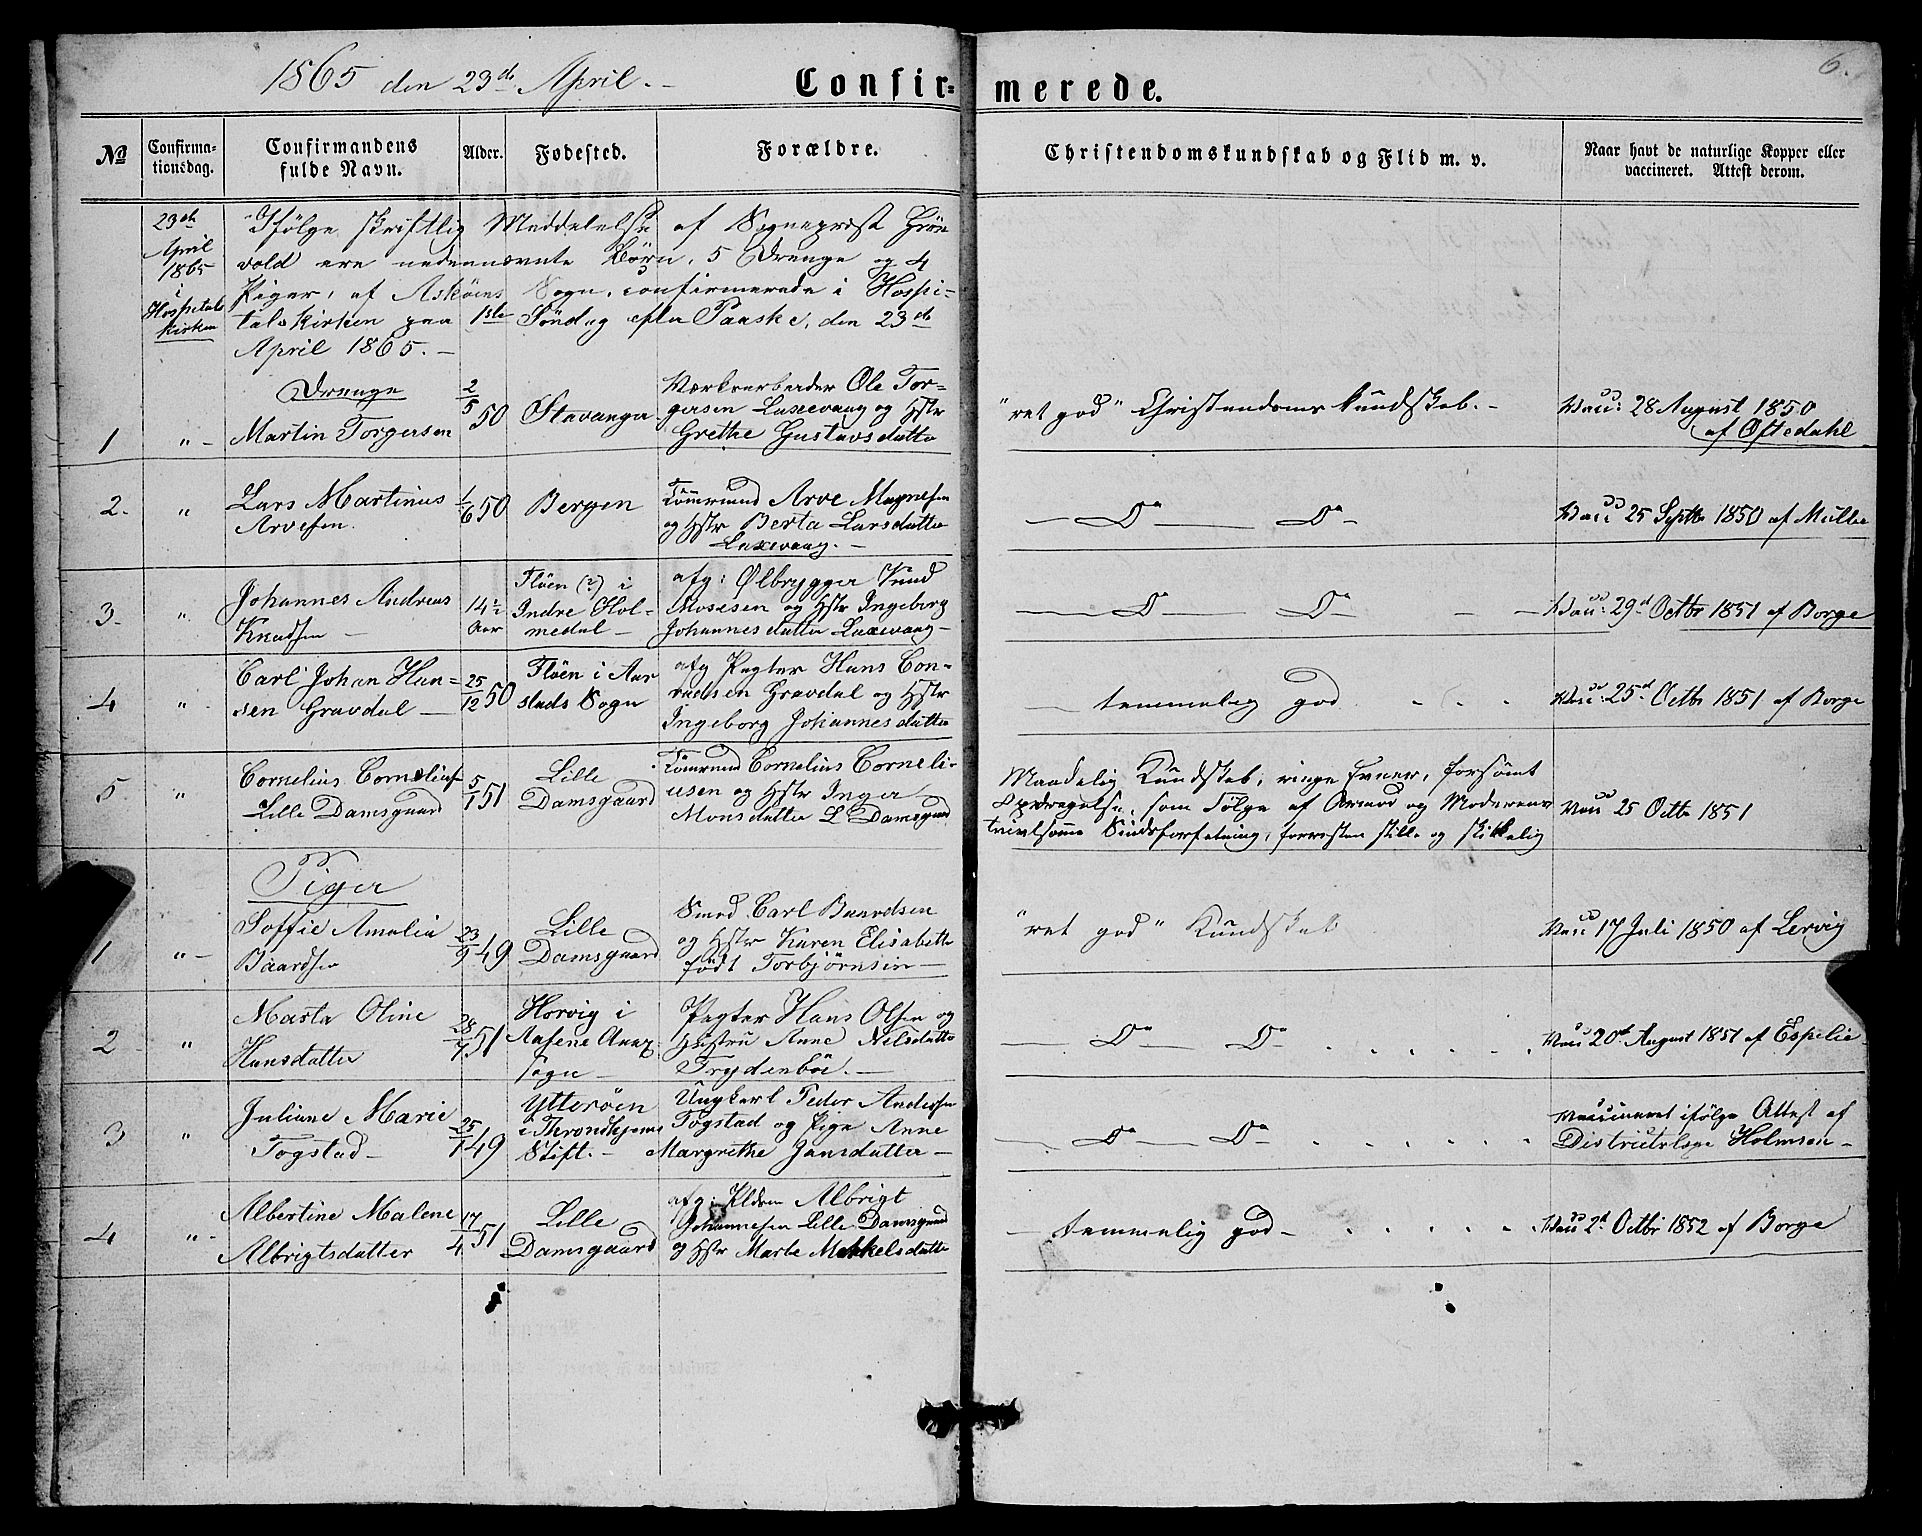 1865 den 23de April. –
Confir= merede.
6.
No
Confirma-
tionsdag.
Confirmandens
fulde Navn.
Alder.
Fødested.
Forældre.
Christendomskundskab og Flid m. v.
Naar havt de naturlige Kopper eller
vaccineret. Attest derom.
23de
April
1865
i
Hospitals
kirken
Ifølge skriftlig Meddelelse af Sognepræst Grøn
vold ere nedennævnte Børn, 5 Drenge og 4
Piger, af Askøens Sogn, confirmerede i Hospi-
talskirken paa 1ste Søndag efter Paaske, den 23de
April 1865. –
Drenge
1 " - Martin Torgersen
2/5 50
Stavanger
Værksarbeider Ole Tor-
gersen Laxevaag og Hstr
Grethe Gustavsdatter
"ret god" Christendoms kundskab. -
Vacc: 28 August 1850
af Oftedahl
2. " Lars Martinus
Arvesen.
1/6 50
Bergen
Tømrmd Arve Magnesen
og Hstr Berta Larsdatter
Laxevaag. -
— Do — Do -
Vacc 25 Septbr 1850 af Müller
3. " Johannes Andreas
Knudsen –
14 1/2
Aar
Fløen (?) i
Indre Hol-
medal –
afg: Ølbrygger Knud
Mosesen og Hstr Ingeborg
Johannesdatter Laxevaag -
— Do — Do — - -
Vacc: 29d Octbr 1851 af Borge
4 " Carl Johan Han-
sen Gravdal –
25/12 50
Fløen i Aar
stads Sogn
afg Pagter Hans Con-
radsen Gravdal og Hstr
Ingeborg Johannesdatter
— temmelig god . . .
Vacc: 25d Octbr 1851 af Borge
5 " Cornelius Corneliusn
Lille Damsgaard
5/1 51
Lille
Damsgaard
Tømrmd Cornelius Corneli-
usen og Hstr Inger
Monsdatter L Damsgrd
Maadelig Kundskab, ringe Evner, forsømt
Opdragelse, som Følge af Armod og Moderens
tvivlsomme Sindsforfatning, forresten stille og skikkelig
Vacc 25 Octbr 1851
Piger
1 " - Soffie Amalia
Baardsen
23/9 49
Lille
Damsgaard
Smed Carl Baardsen
og Hstr Karen Elisabeth
født Torbjørnsen –
"ret god" Kundskab
Vacc 17 Juli 1850 af Lervig
2 " Marta Oline
Hansdatter
28/7 51
Horvig i
Aasene Annx
Sogn –
Pagter Hans Olsen og
Hustru Anne Nilsdatter
Frydenbøe. –
— Do — Do . . . . . .
Vacc 20de August 1851 af Espelie
3 " Juliane Marie
Togstad –
25/1 49
Ytterøen
i Throndhjems
Stift. –
Ungkarl Peder Andersen
Togstad og Pige Anne
Margrethe Jansdatter –
— Do — Do . . . . . .
Vaccineret ifølge Attest af
Districtslæge Holmsen –
4 " - Albertine Malene
Albrigtsdatter
17/4 51
Lille
Damsgaard
afg: Hdsm Albrigt
Johannesen Lille Damsgaard
og Hstr Marte Mikkelsdatter
— temmelig god – . . . . .
Vacc 2d Octbr 1852 af Borge